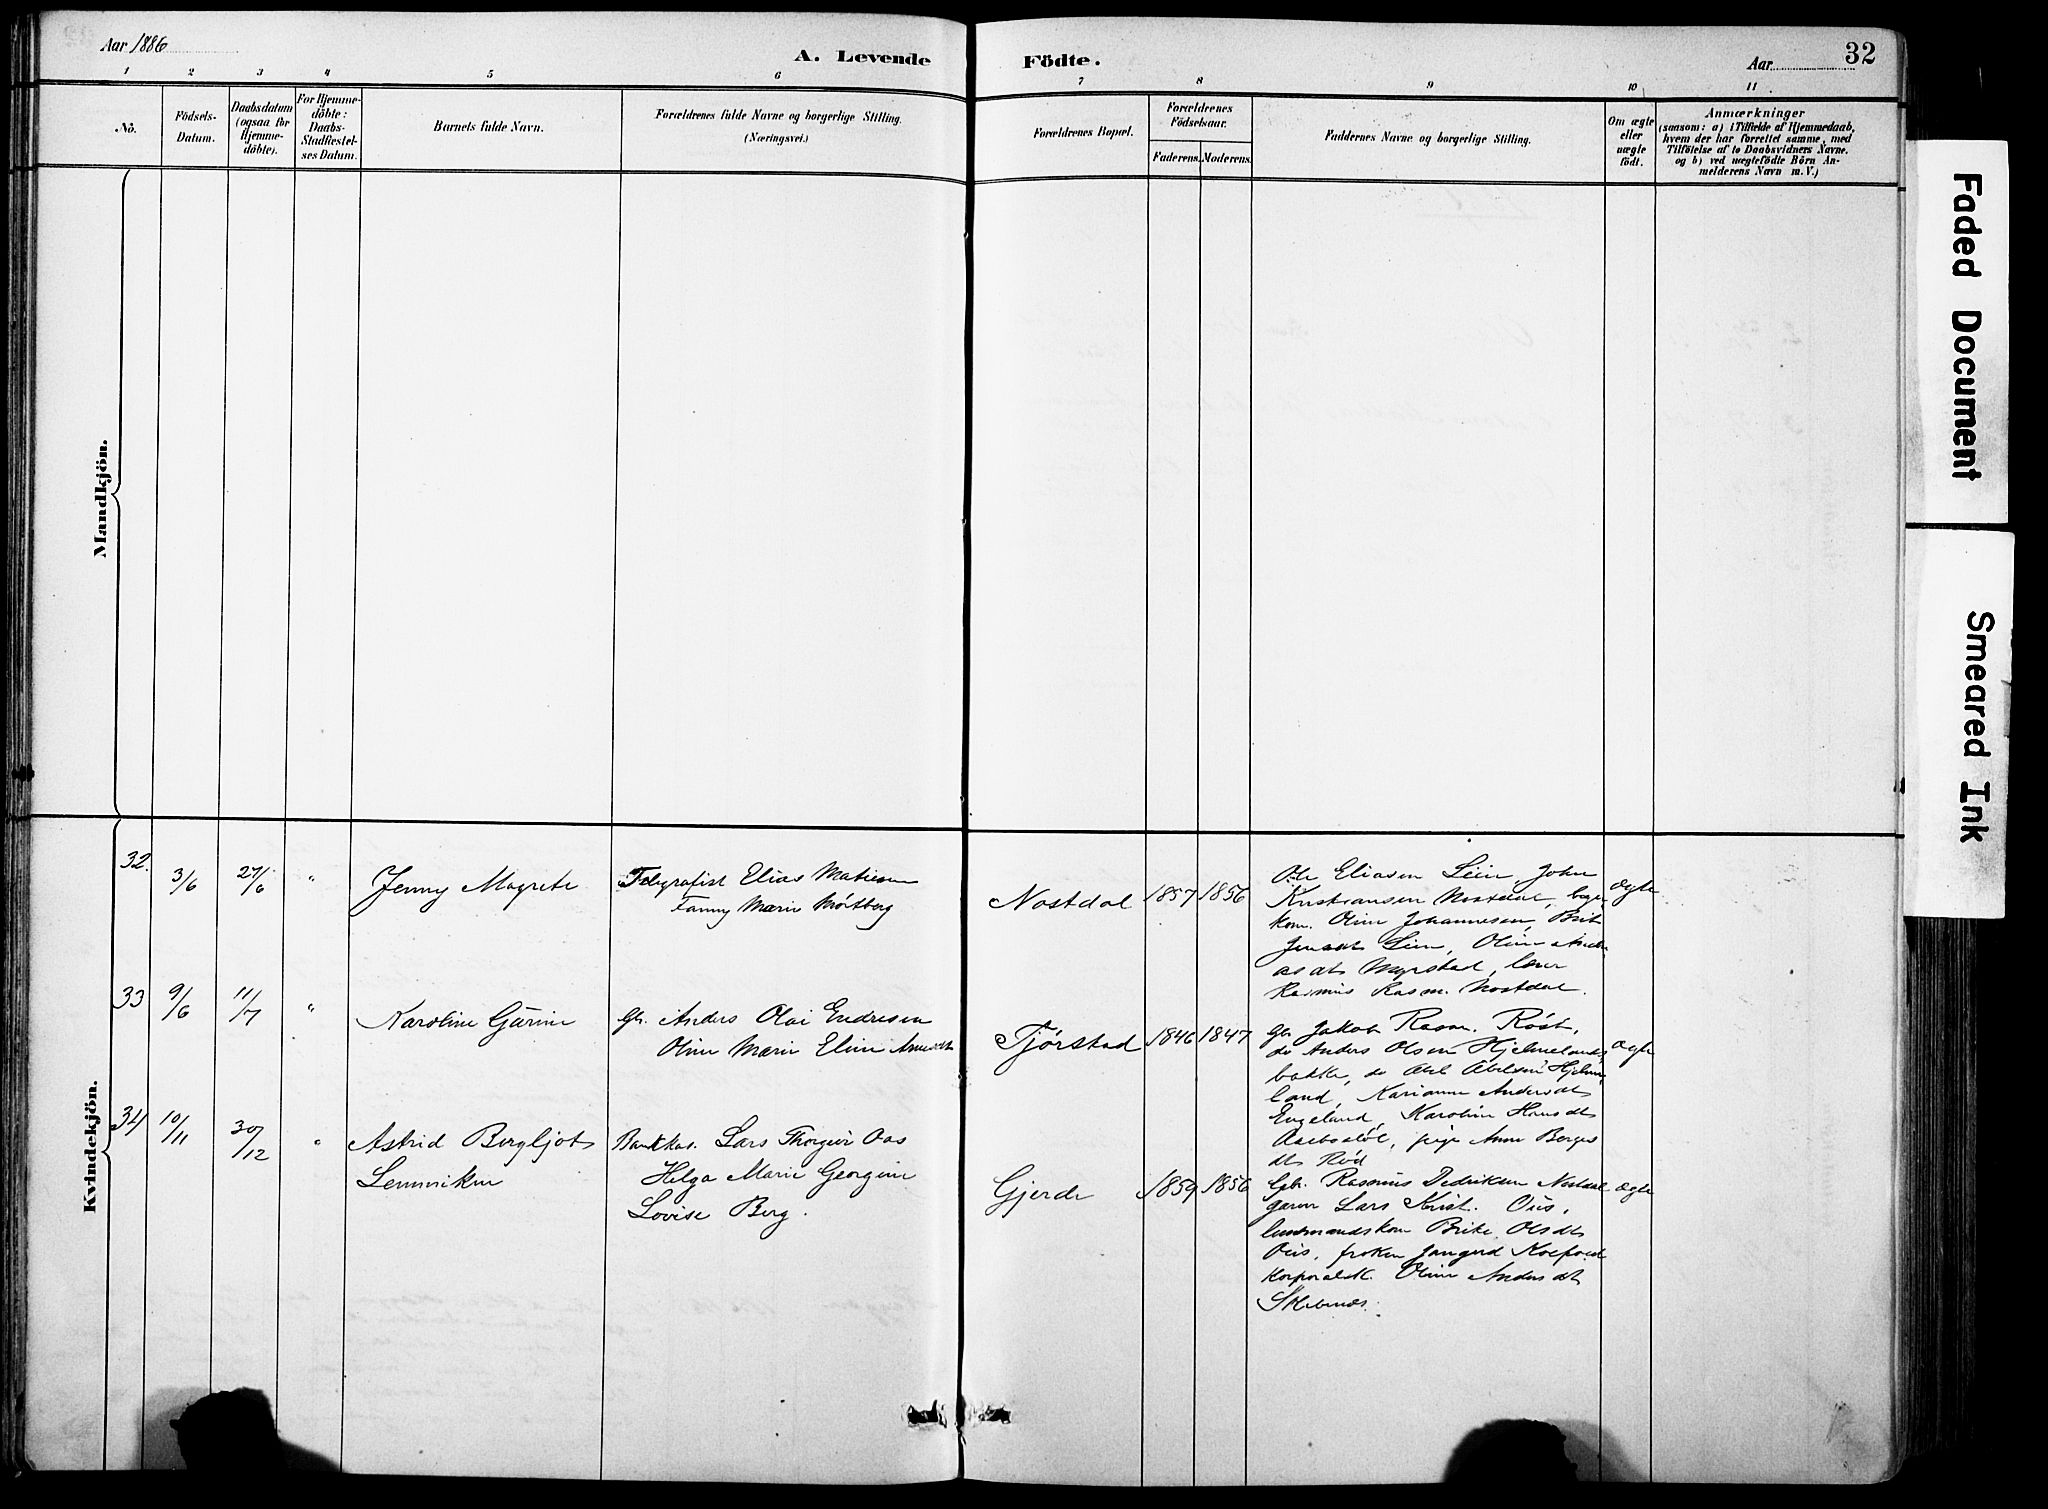 Aar 1886
A. Levende
Födte.
Aar
32
1 2 3 4 5 6 7 8 9 10 11
Nö.
Födsels-
Datum.
Daabsdatum
(ogsaa for
Hjemme-
döbte).
For Hjemme-
döbte:
Daabs-
Stadfæstel-
ses Datum.
Barnets fulde Navn.
Forældrenes fulde Navne og borgerlige Stilling.
(Næringsvei.)
Forældrenes Bopæl.
Forældrenes
Födselsaar.
Faderens. Moderens.
Faddernes Navne og borgerlige Stilling.
Om ægte
eller
uægte
födt.
Anmærkninger
(saasom: a) i Tilfælde af Hjemmedaab,
hvem der har forrettet samme, med
Tilföielse af to Daabsvidners Navne.
og b) ved uægtefödte Börn An-
melderens Navn m. V.)
Mandkjön.
Kvindekjön.
32. 3/6 27/6 "
Jenny Magrete
Telegrafist Elias Matiesen
Fanny Marie
Nostdal 1857 1856
Ole Eliasen Lein, John
Kristiansen Nostdal,
kone. Oline Johannesen, Brit
Lein, Oline
Myrstad, lærer
Rasmus Rasm. Nostdal.
ægte
33 9/6 11/7 "
Karoline Gurine
gb. Anders Olai Endresen
Oline Marie Eline
Tjørstad 1846 1847
gb. Jakob Rasm. Røst,
do Anders Olsen Hjelmelands
bakke, do Abel Abelsen Hjelme
land, Karianne Andersdt
Engeland, Karoline Hansdt
pige Anne Berges
dt Rød
ægte
34 10/11 30/12 "
Astrid Bergljot
Lemmeriken
Bankkas. Lars Thorgeir Aas
Helga Marie Georgine
Lovise Berg.
Gjerde 1859 1856
Gbr. Rasmus Dedriksen Nostdal
garver Lars Krist. Ous,
lensmandskone Brite Olsdt
Ous, frøken Koefoed
korporalsk. Oline Andersdt
Skebenes.
ægte
Faded Document
Smeared Ink